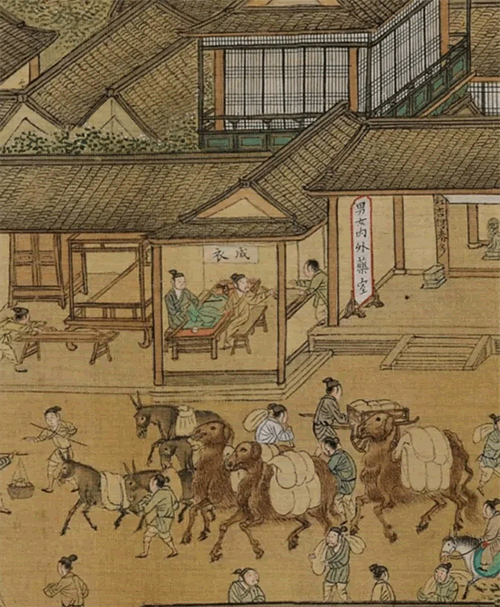 成衣
男女内外藥室